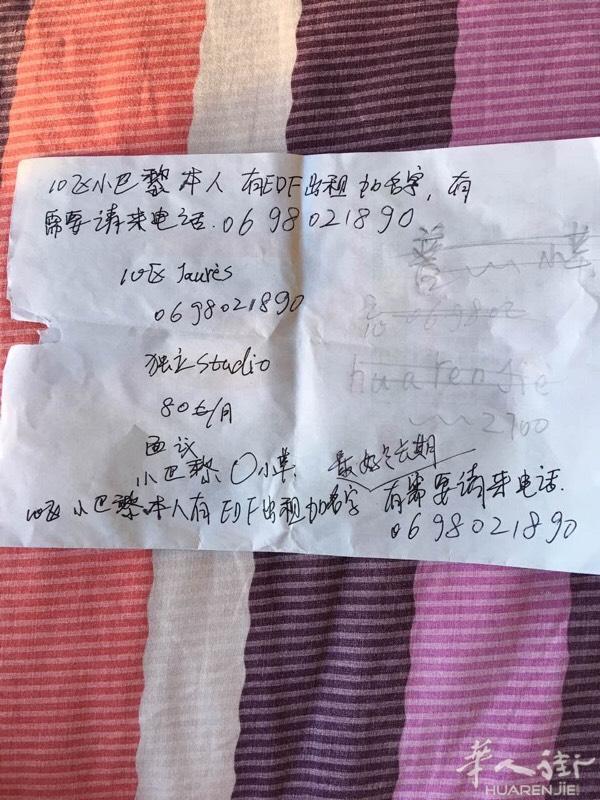 10区小巴黎 本人 有EDF出租加名字，有
需要请来电话.0698021890
10区 Jaurès
0698021890
独立 Studio
80€/月
面议
小巴黎 小
最好长期
10区 小巴黎 本人有 EDF出租加名字 有需要请来电话.
0698021890
069802
huarenjie
2700
華人街
HUARENJIE